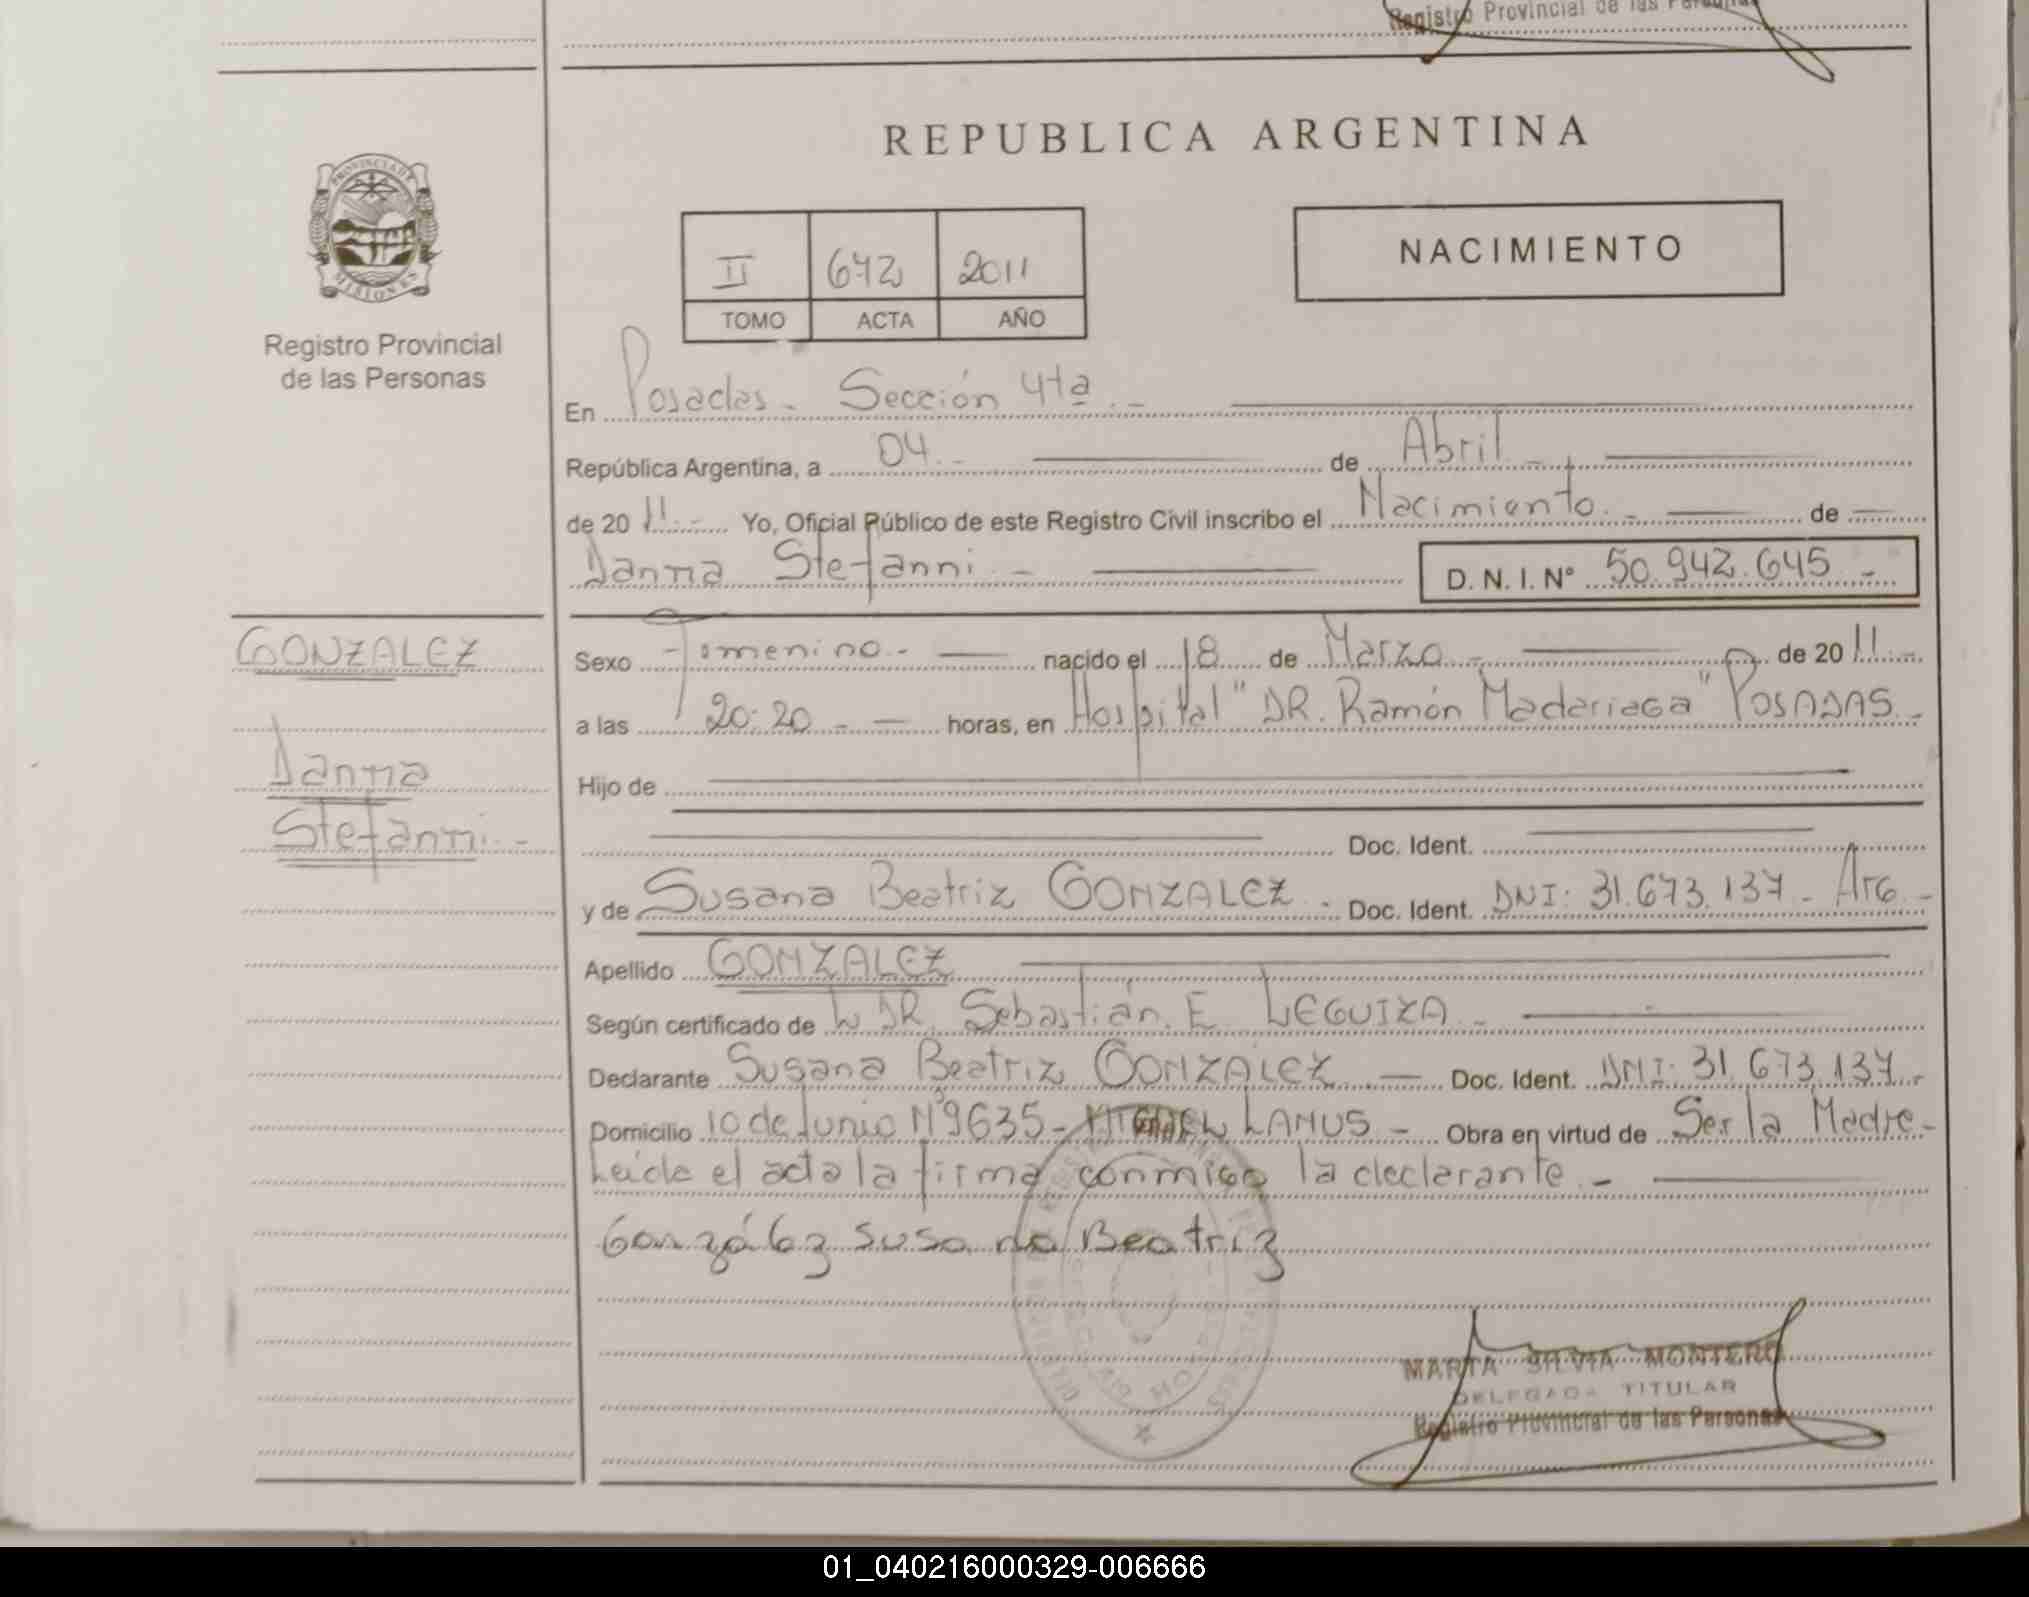 Registro Provincial de las Personas
REPUBLICA ARGENTINA
PROVINCIA DE
MISIONES
Registro Provincial
de las Personas
II 672 2011
TOMO ACTA AÑO
NACIMIENTO
En Posadas - Sección 4ta. -
República Argentina, a 04. - de Abril -
de 20 11. - Yo, Oficial Público de este Registro Civil inscribo el Nacimiento. - de
Danna Stefanni - D. N. I. Nº 50.942.645 -
GONZALEZ
Danna
Stefanni. -
Sexo Femenino. - nacido el 18 de Marzo - de 20 11. -
a las 20:20 - horas, en Hospital "DR. Ramón Madariaga" POSADAS. -
Hijo de
Doc. Ident.
y de Susana Beatriz GONZALEZ. - Doc. Ident. DNI: 31.673.137 - Arg. -
Apellido GONZALEZ
Según certificado de DR. Sebastián. E. LEGUIZA -
Declarante Susana Beatriz GONZALEZ - Doc. Ident. DNI: 31.673.137 -
Domicilio 10 de Junio Nº 9635 - MIGUEL LANUS - Obra en virtud de Ser la Madre -
Leída el acta la firma conmigo la declarante. -
González Susana Beatriz
MARTA SILVIA MONTERO
DELEGADA TITULAR
Registro Provincial de las Personas
01_040216000329-006666